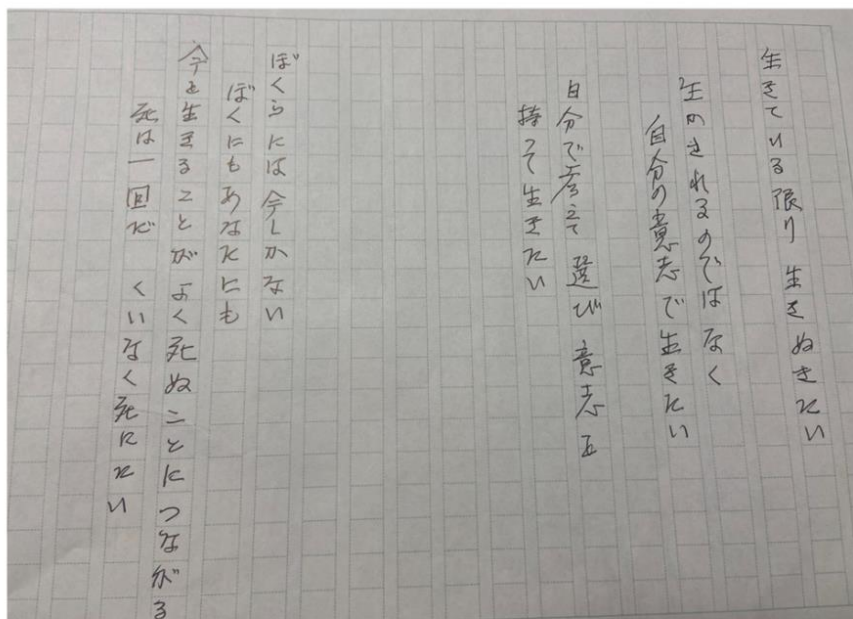 生きている限り 生きぬきたい
生かされるのではなく
自分の意志で生きたい
自分で考えて 選び 意志を
持って生きたい
ぼくらには今しかない
ぼくにもあなたにも
今を生きることが よく死ぬことにつながる
死は一回だ くいなく死にたい